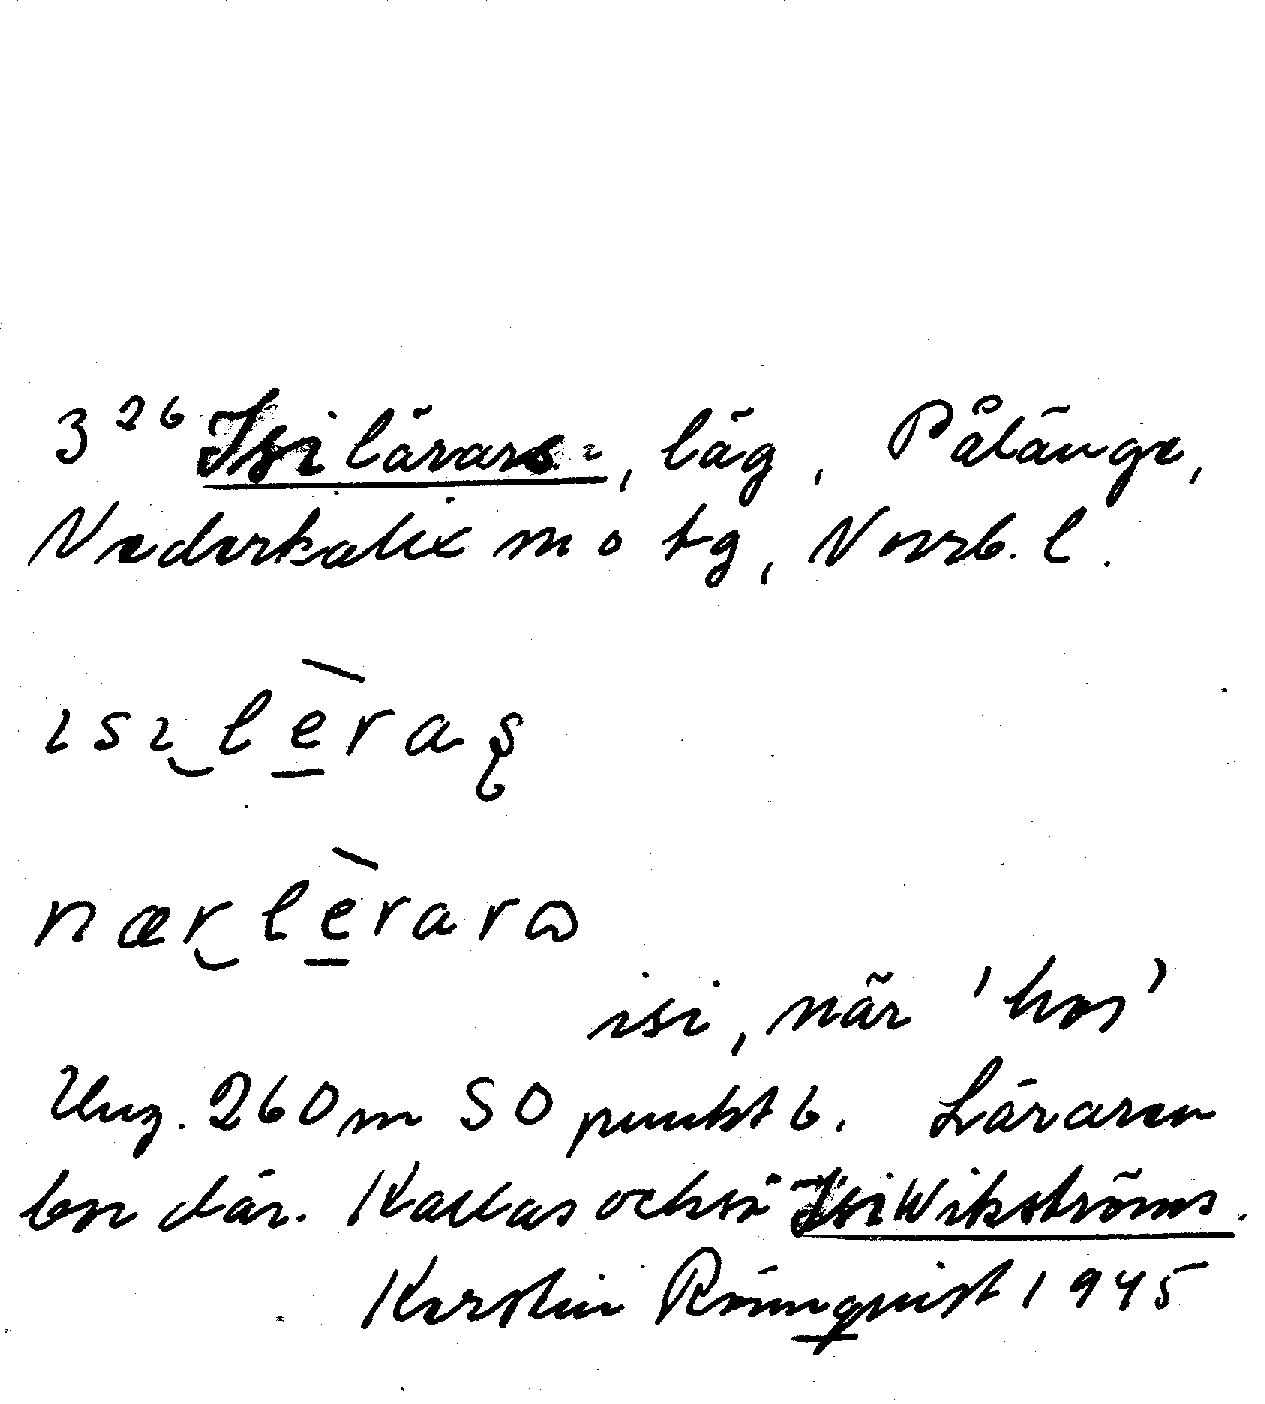 3²⁶ Isi lärars-, läg, Pålänge,
Nederkalix m o tg, Norrb. l.
ısı‿lèraş
nær‿lèrarɷ
isi, när 'hos'
Ung. 260 m SO punkt 6. Läraren
bor där. Kallas också Isi Wikströms.
Kerstin Rönnqvist 1945